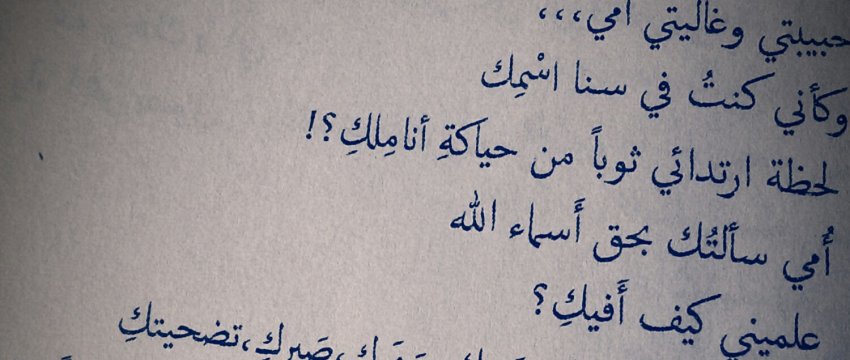 حبيبتي وغاليتي أمي،،،
وكأني كنتُ في سنا اسْمِك
لحظة ارتدائي ثوباً من حياكةِ أنامِلكِ؟!
أُمي سألتُك بحق أَسماء الله
علميني كيف أَفيكِ؟
صَبركِ،تضحيتكِ